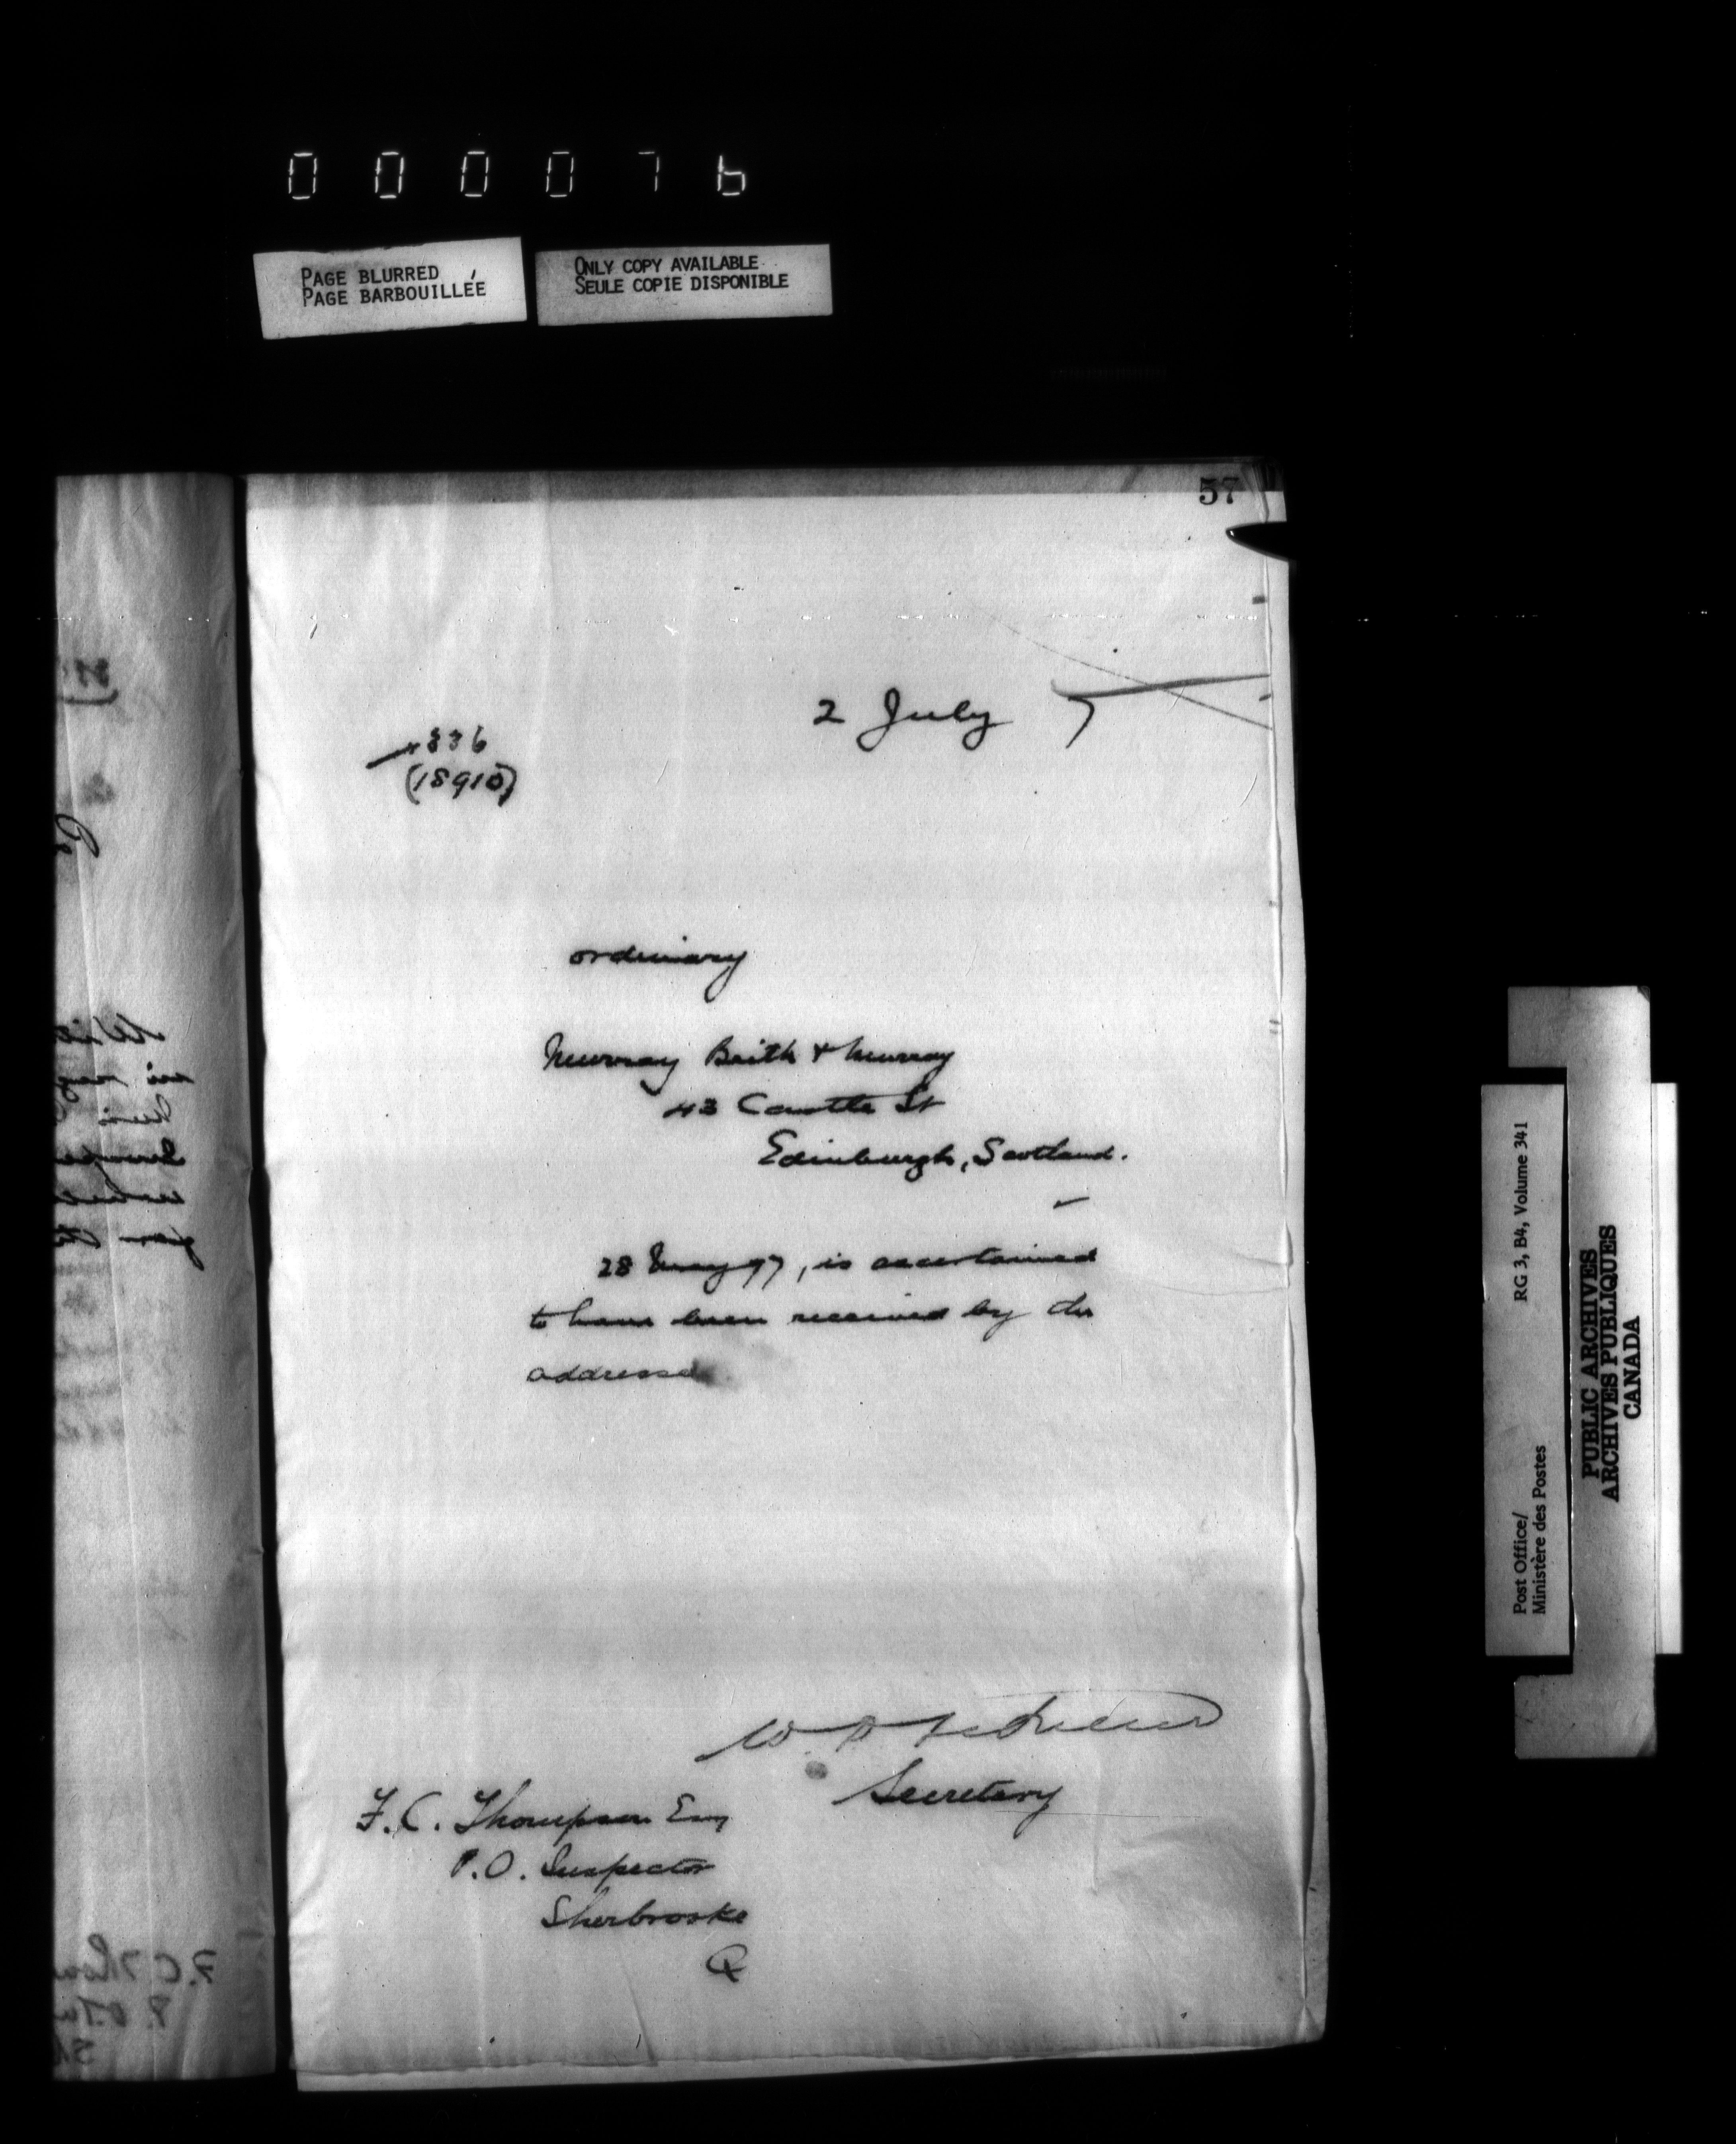 000076
PAGE BLURRED
PAGE BARBOUILLÉE
ONLY COPY AVAILABLE
SEULE COPIE DISPONIBLE
57
2 July 7
336
(18910)
ordinary
Murray Beith & Murray
43 Castle St
Edinburgh, Scotland.
28 May 97, is ascertained
to have been received by the
addressee
Secretary
F. C. Thompson Esq
P.O. Inspector
Sherbrooke
Q
RG 3, B4, Volume 341
Post Office/
Ministère des Postes
PUBLIC ARCHIVES
ARCHIVES PUBLIQUES
CANADA